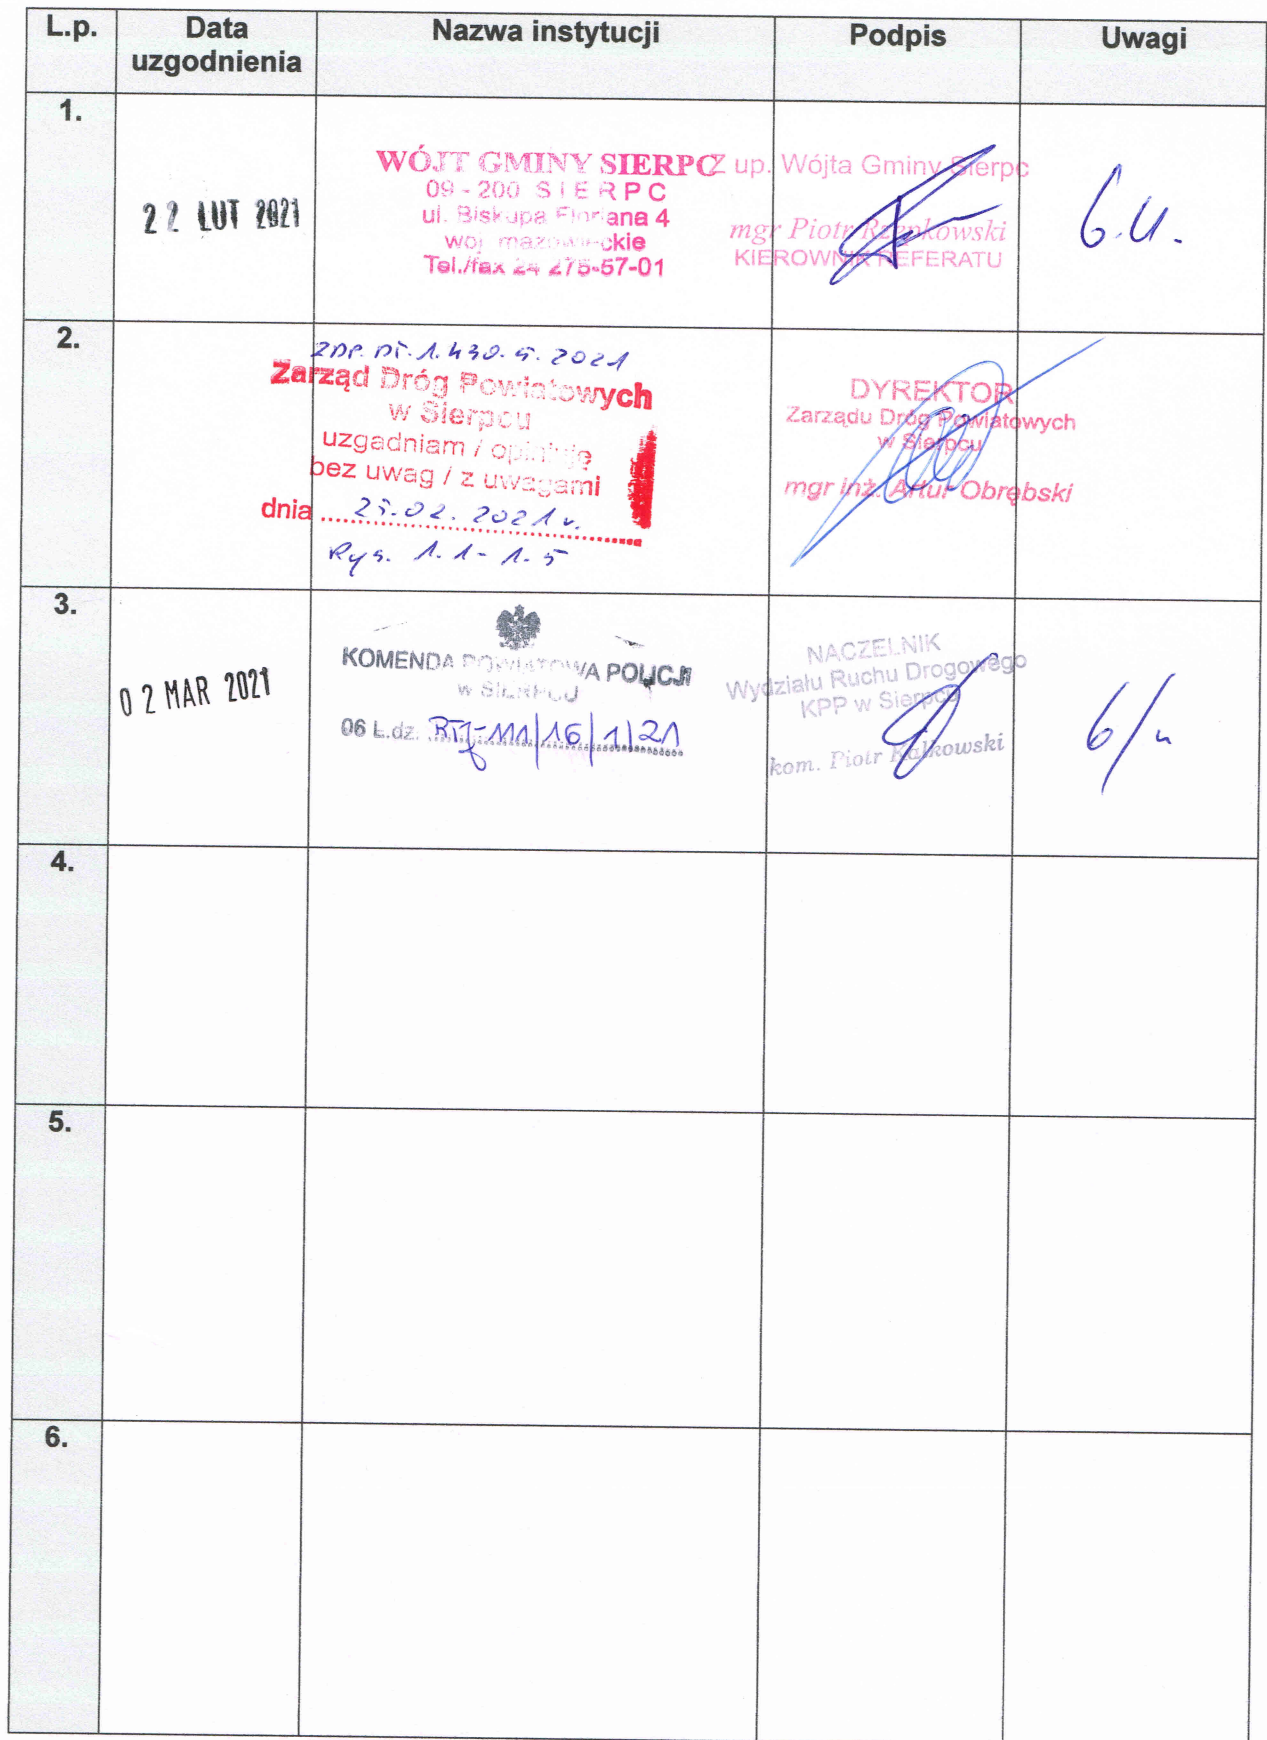 L.p. Data uzgodnienia Nazwa instytucji Podpis Uwagi
1.
22 LUT 2021
WÓJT GMINY SIERPC
09-200 SIERPC
ul. Biskupa Floriana 4
woj. mazowieckie
Tel./fax 24 275-57-01
Z up. Wójta Gminy Sierpc
mgr Piotr Rzepkowski
KIEROWNIK REFERATU
b.u.
2.
Zarząd Dróg Powiatowych
w Sierpcu
uzgadniam / opiniuję
bez uwag / z uwagami
dnia 25.02.2021 r.
Rys. 1.1-1.5
DYREKTOR
Zarządu Dróg Powiatowych
w Sierpcu
mgr inż. Artur Obrębski
3.
02 MAR 2021
KOMENDA POWIATOWA POLICJI
w SIERPCU
06 L.dz.
NACZELNIK
Wydziału Ruchu Drogowego
KPP w Sierpcu
kom. Piotr Kalkowski
b/u
4.
5.
6.